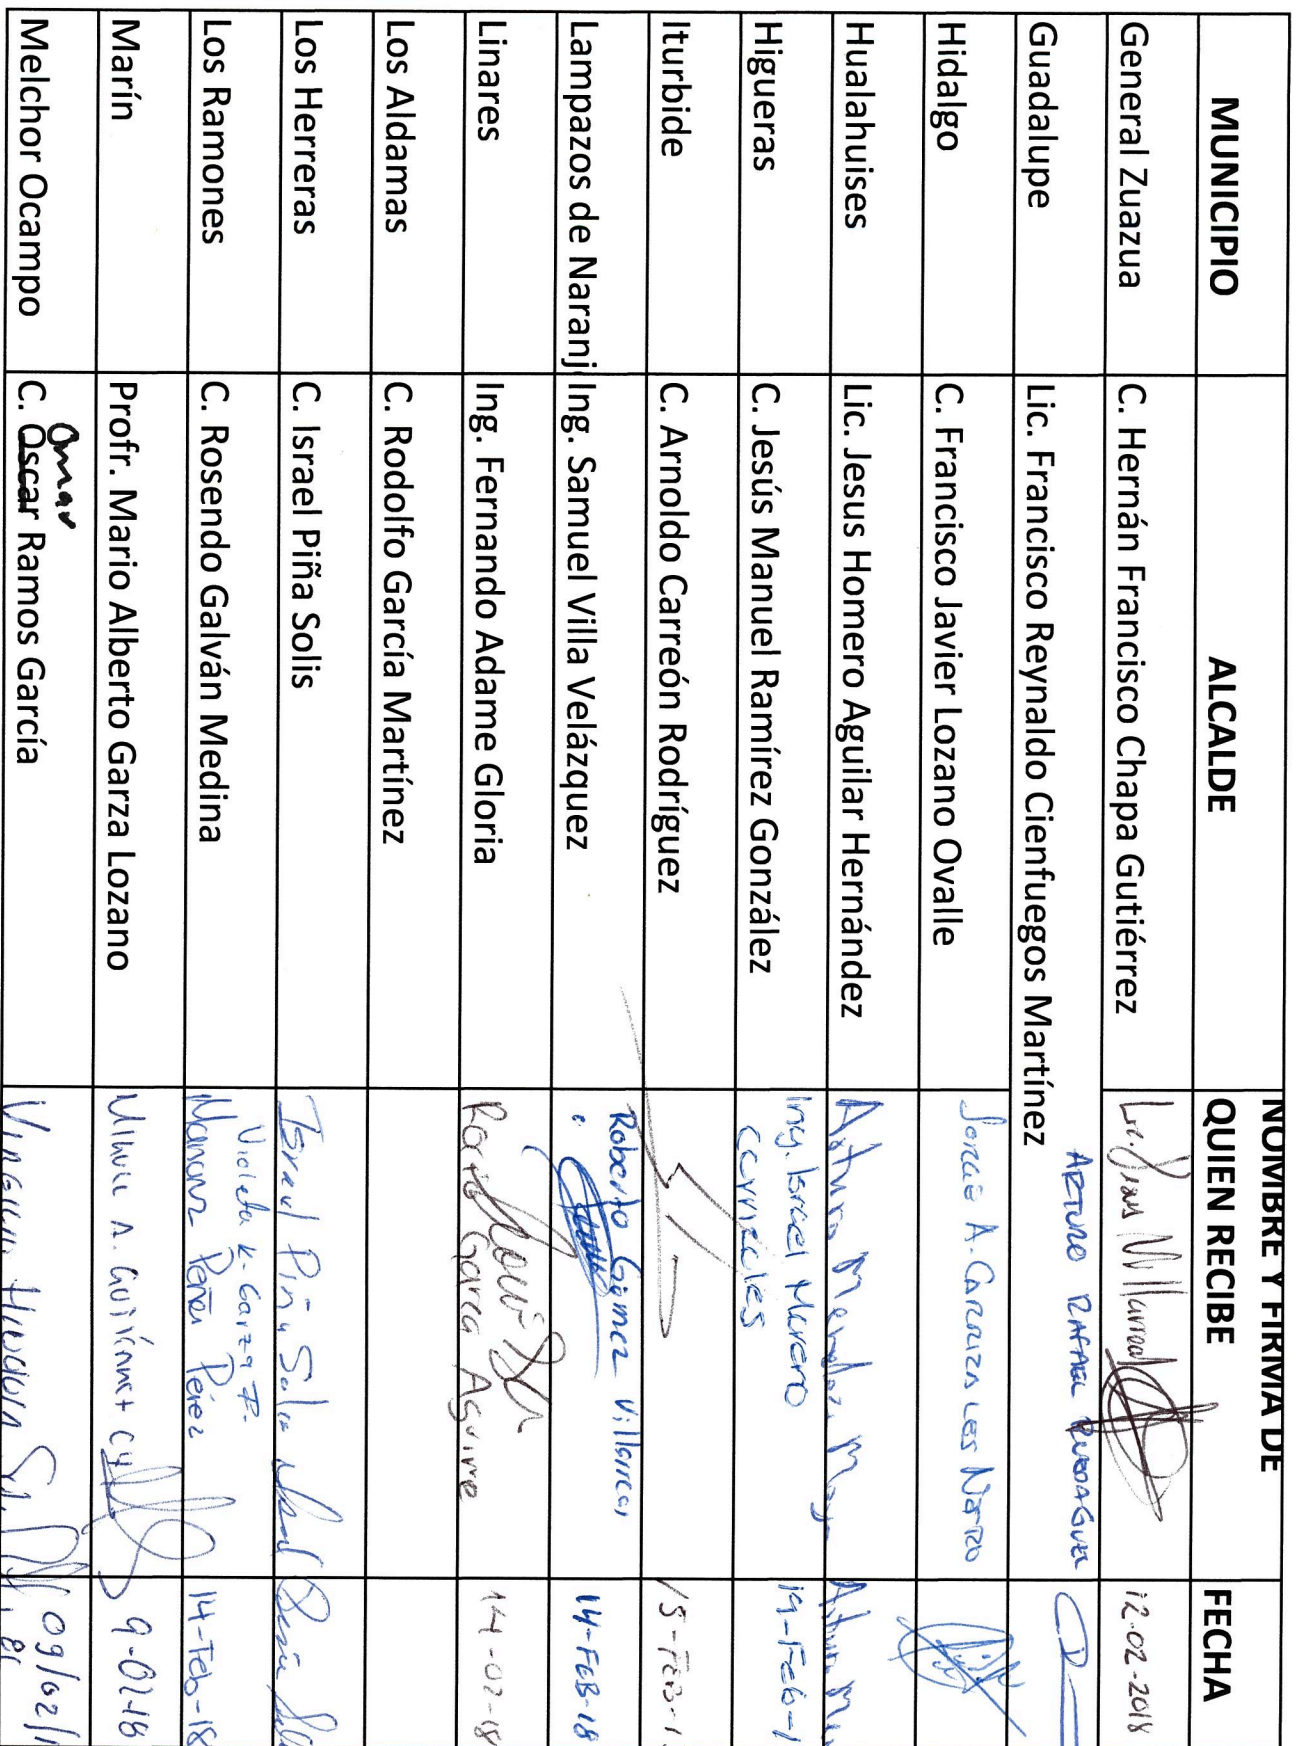 MUNICIPIO ALCALDE NOMBRE Y FIRMA DE QUIEN RECIBE FECHA
General Zuazua C. Hernán Francisco Chapa Gutiérrez Lic. Villarreal 12-02-2018
Guadalupe Lic. Francisco Reynaldo Cienfuegos Martínez ARTURO RAFAEL
Hidalgo C. Francisco Javier Lozano Ovalle Jorge A.
Hualahuises Lic. Jesus Homero Aguilar Hernández Arturo
Higueras C. Jesús Manuel Ramírez González Ing. Israel Moreno
14-Feb-1
Iturbide C. Arnoldo Carreón Rodríguez 15-FEB-1
Lampazos de Naranj Ing. Samuel Villa Velázquez Roberto Gomez Villarrea 14-FEB-18
Linares Ing. Fernando Adame Gloria Rocio Garca Aguirre 14-02-18
Los Aldamas C. Rodolfo García Martínez
Los Herreras C. Israel Piña Solis Israel Piña Solis
Los Ramones C. Rosendo Galván Medina Violeta K. Garza P.
Pérez 14-Feb-18
Marín Profr. Mario Alberto Garza Lozano 9-02-18
Omar
Melchor Ocampo C. Oscar Ramos García 09/02/1